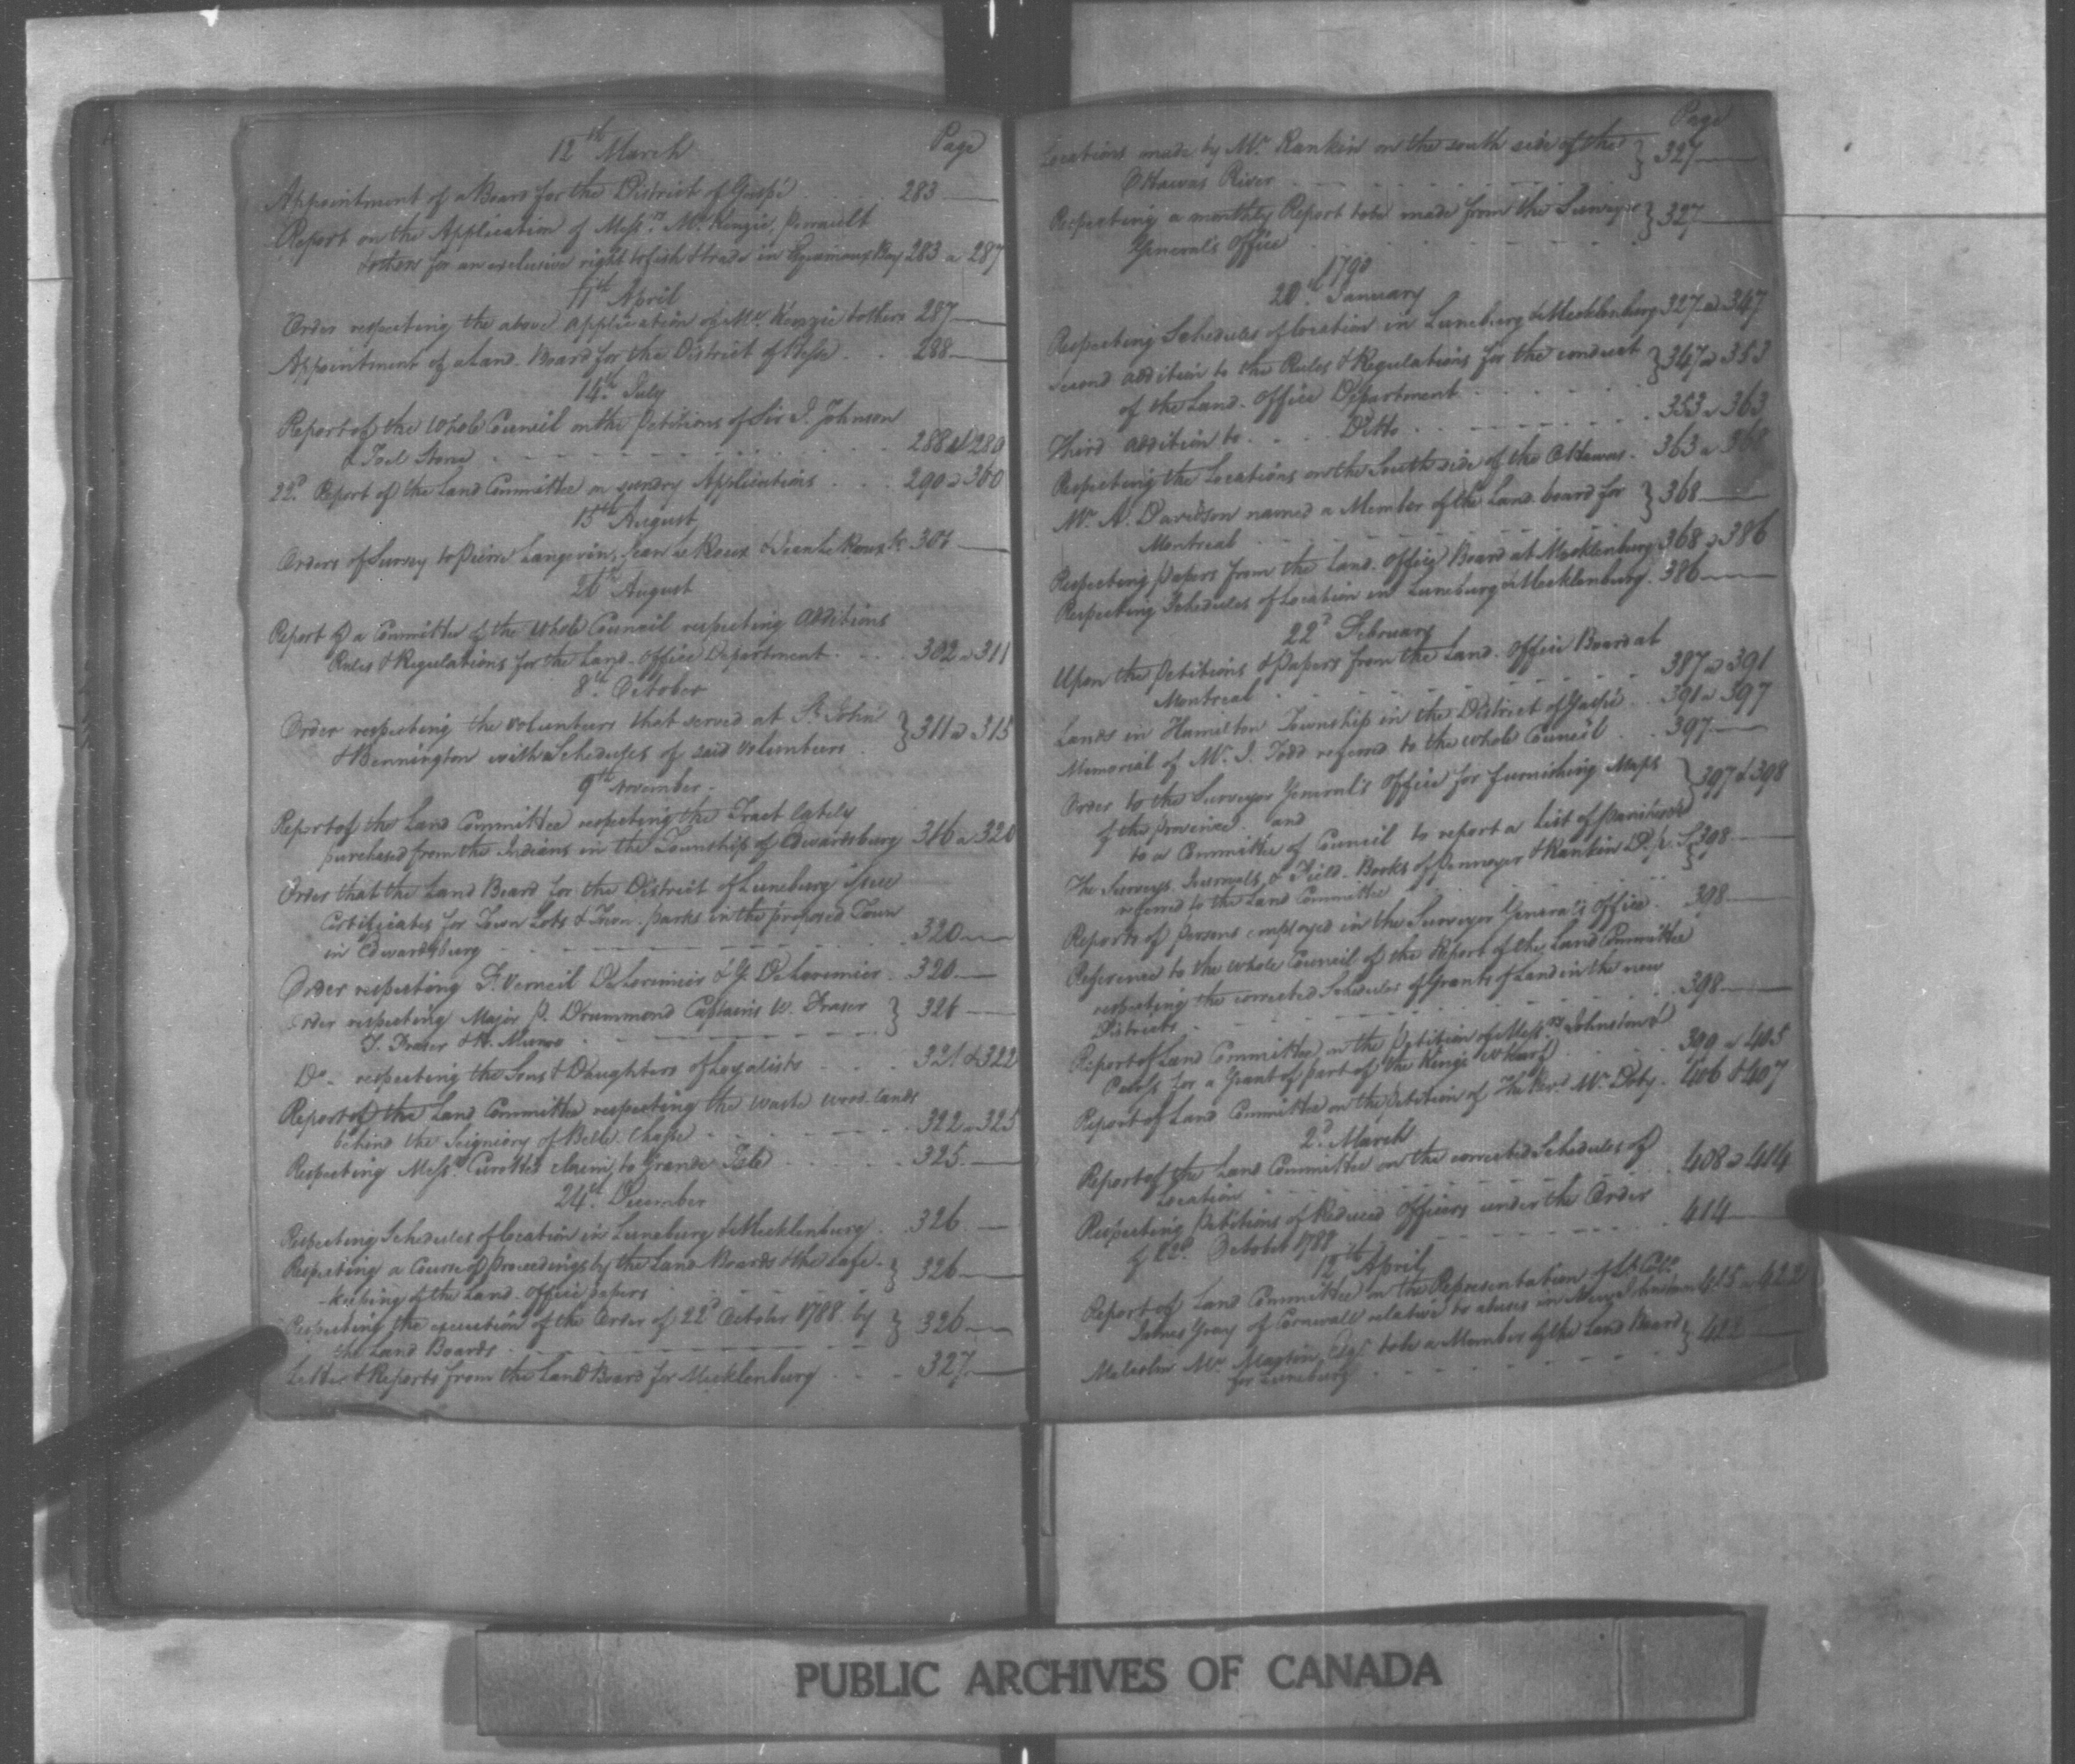 12th March Page
Appointment of a Board for the District of Gaspé . . . . 283
Report on the Application of Messrs. McKenzie, Perrault
& others for an exclusive right to fish & trade in Esquimaux Bay 283 a 287
11th April
Order respecting the above application of Mr. Kenzie & others 287
Appointment of a Land Board for the District of Hesse . . 288
14th July
Report of the whole Council on the Petitions of Sir J. Johnson
& Joel Stone . . . 288 & 289
22d. Report of the Land Committee on sundry Applications . . . 290 a 300
15th August
Orders of Survey to Pierre Langevin, Jean Le Roux & Jean Le Roux 301
August
Report of a Committee of the whole Council respecting additions
Rules & Regulations for the Land-Office Department . . . 302 a 311
8th October
Order respecting the volunteers that served at St. John
& Bennington with a Schedules of said volunteers . } 311 a 315
9th November.
Report of the Land Committee respecting the Tract lately
purchased from the Indians in the Township of Edwardsburg 316 a 320
Order that the Land Board for the District of Luneburg issue
Certificates for Town Lots & Town-parks in the proposed Town
in Edwardsburg . . . 320
Order respecting F. Verneil De Lorimier & G. De Lorimier . 320
Order respecting Major P. Drummond Captains W. Fraser
T. Fraser & H. Munro . } 321
Do. respecting the Sons & Daughters of Loyalists . . . 321 & 322
Report of the Land Committee respecting the waste wood-lands
behind the Seigniory of Belle Chasse . . . 322 a 325
Respecting Messrs. Curotte's claim to Grande Isle . . . 325
24th December
Respecting Schedules of location in Luneburg & Mecklenburg . 326
Respecting a Course of Proceedings by the Land Boards & the safe-
-keeping of the Land-Office papers } 326
Respecting the execution of the Order of 22d October 1788 by
the Land Boards . } 326
Letter & Reports from the Land Board for Mecklenburg . . . 327
Page
Locations made by Mr. Rankin on the south side of the
Ottawas River } 327
Respecting a monthly Report to be made from the Surveyor
General's Office } 327
1790
20th January
Respecting Schedules of location in Luneburg & Mecklenburg 327 a 347
Second addition to the Rules & Regulations for the conduct
of the Land-Office Department . . . } 347 a 353
Third addition to . . . Ditto . . . 353 a 363
Respecting the Locations on the South side of the Ottawas . 363 a 368
Mr. A. Davidson named a Member of the Land board for
Montreal } 368
Respecting papers from the Land-Office Board at Mecklenburg 368 a 386
Respecting Schedules of Location in Luneburg & Mecklenburg . 386
22d February
Upon the Petitions & papers from the Land-Office Board at
Montreal . . . 387 a 391
Lands in Hamilton Township in the District of Gaspé . . 391 a 397
Memorial of Mr. I. Todd referred to the whole Council . . 397
Order to the Surveyor General's Office for furnishing Maps
of the province and
to a Committee of Council to report a list of parishes } 397 & 398
The Surveys, Journals, & Field-Books of Pennoyer & Rankin
referred to the Land Committee } 398
Reports of persons employed in the Surveyor General's Office . 398
Reference to the whole Council of the Report of the Land Committee
respecting the corrected Schedules of Grants of Land in the new
Districts . . . 398
Report of Land Committee on the Petition of Messrs. Johnston &
for a Grant of part of the King's Wharf . . . 399 a 405
Report of Land Committee on the Petition of The Revd. Mr. Doty . 406 & 407
2d. March
Report of the Land Committee on the corrected Schedules of
Location . . . 408 a 414
Respecting Petitions of Reduced Officers under the Order
of 22d. October 1788 . . . 414
12th April
Report of Land Committee on the Representation of Lt. Colo.
James Gray of Cornwall relative to abuses in New Johnstown 415 a 422
Malcolm Mc. Martin, Esqr. to be a Member of the Land Board
for Luneburg } 422
PUBLIC ARCHIVES OF CANADA